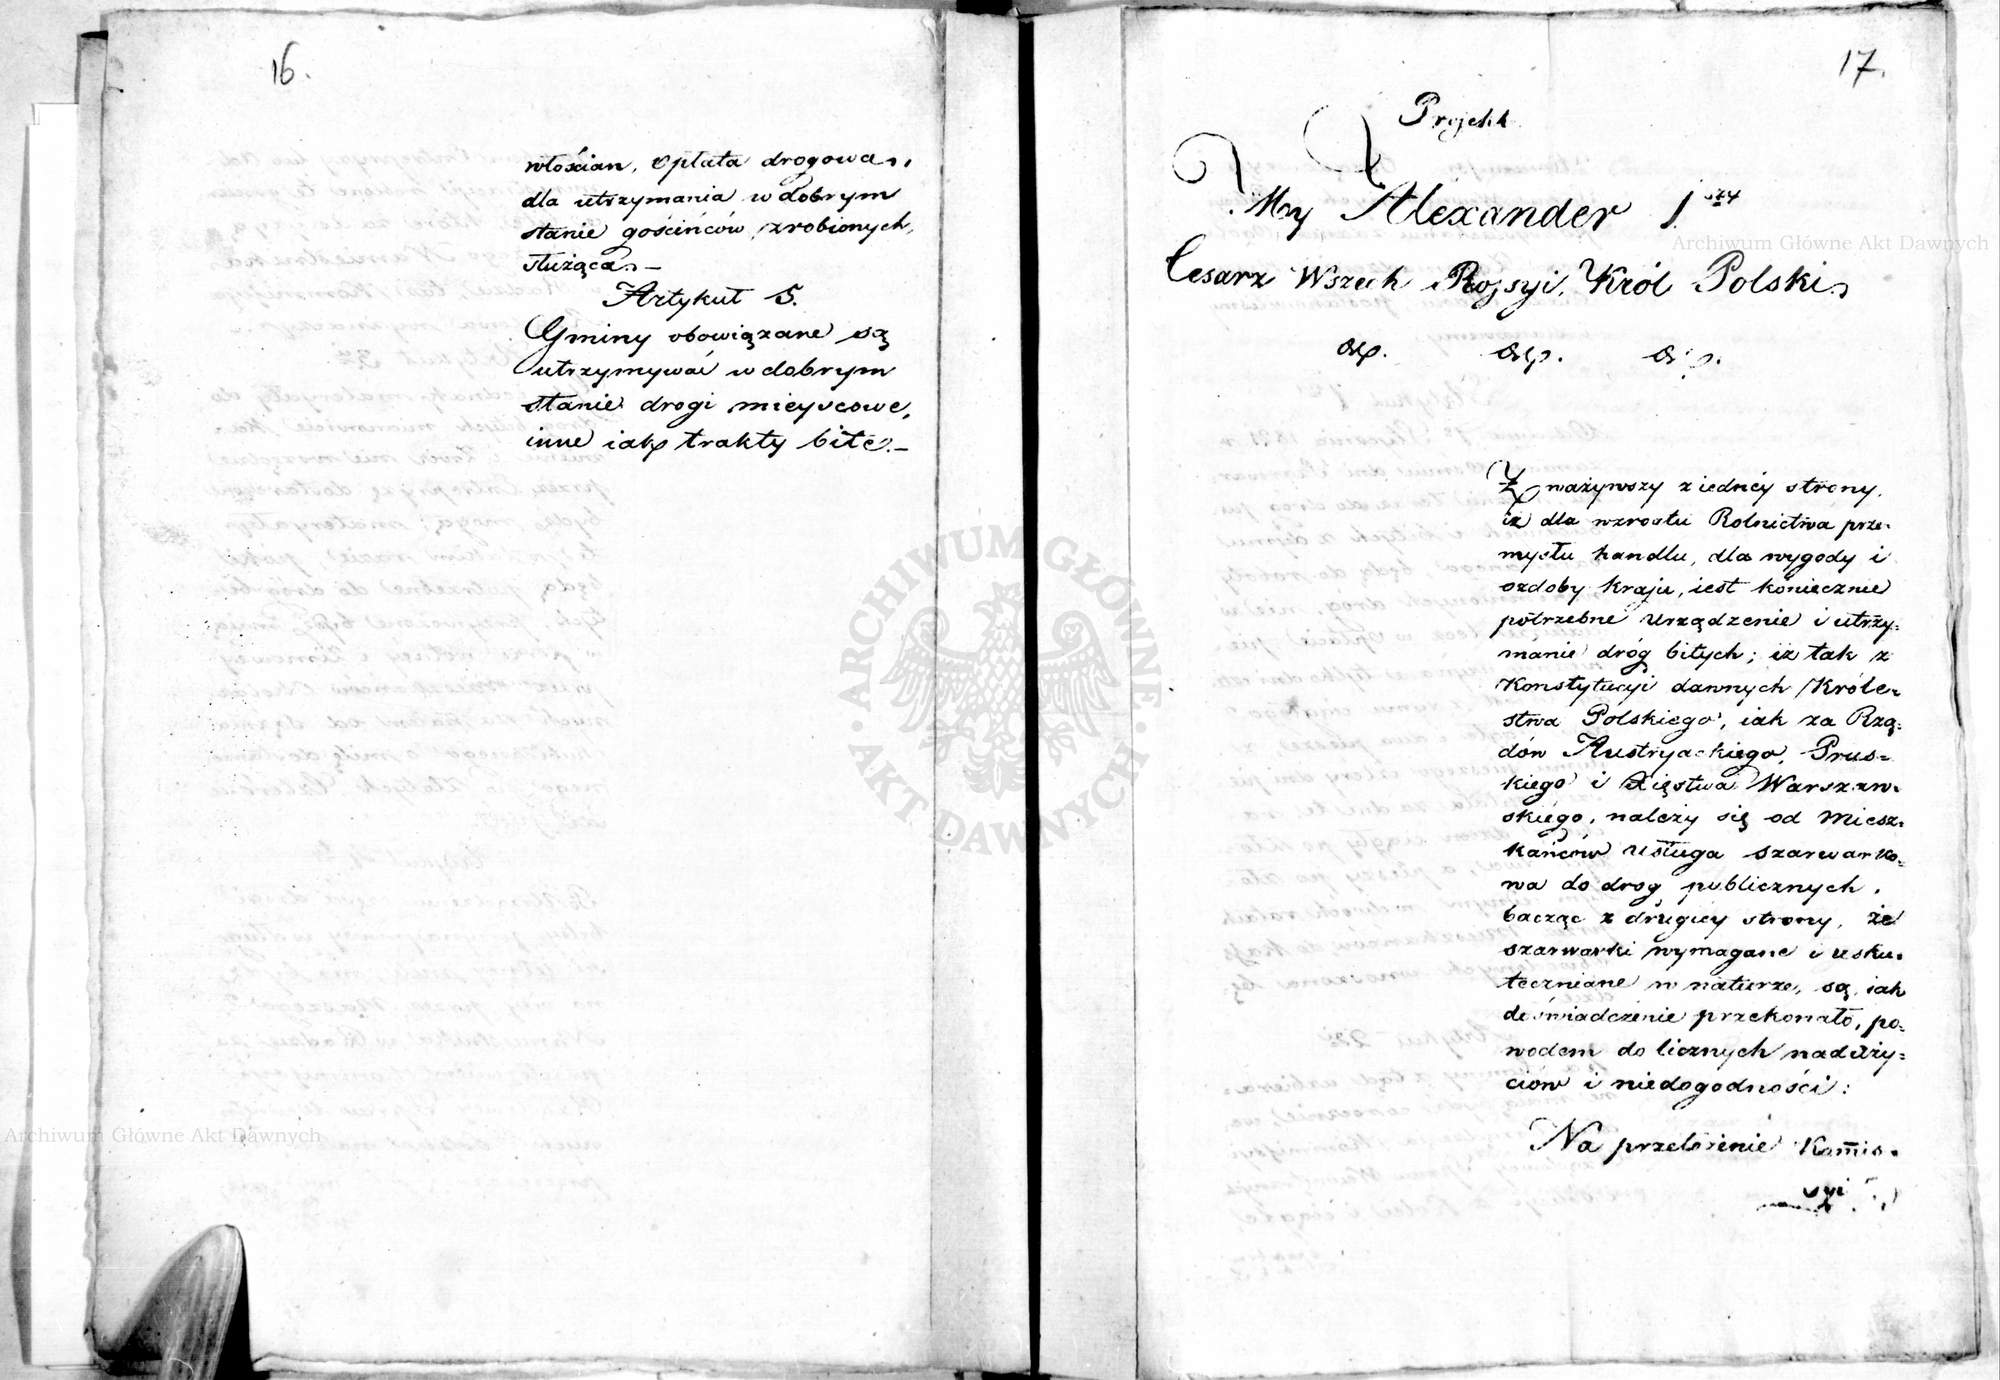 16.
włościan, opłata drogowa,
dla utrzymania w dobrym
stanie gościńców zrobionych,
służąca.–
Artykuł 5.
Gminy obowiązane są
utrzymywać w dobrym
stanie drogi mieyscowe,
inne iak trakty bite.–
17.
Projekt
My Alexander 1szy
Cesarz Wszech Rossyi, Król Polski
etc. etc. etc.
Zważywszy z iedney strony,
iż dla wzrostu Rolnictwa prze-
mysłu handlu, dla wygody i
ozdoby kraju, iest koniecznie
potrzebne urządzenie i utrzy-
manie dróg bitych; iż tak z
Konstytucyi dawnych Króle-
stwa Polskiego, iak za Rzą-
dów Austryackiego, Prus-
kiego i Xięstwa Warszaw-
skiego, należy się od Miesz-
kańców usługa szarwarko-
wa do drog publicznych.
bacząc z drugiey strony, że
szarwarki wymagane i usku-
teczniane w naturze, są, iak
doświadczenie przekonało, po-
wodem do licznych naduży-
ciów i niedogodności:
Na przełożenie Kommis-
syi
Archiwum Główne Akt Dawnych
Archiwum Główne Akt Dawnych
ARCHIWUM GŁÓWNE
AKT DAWNYCH